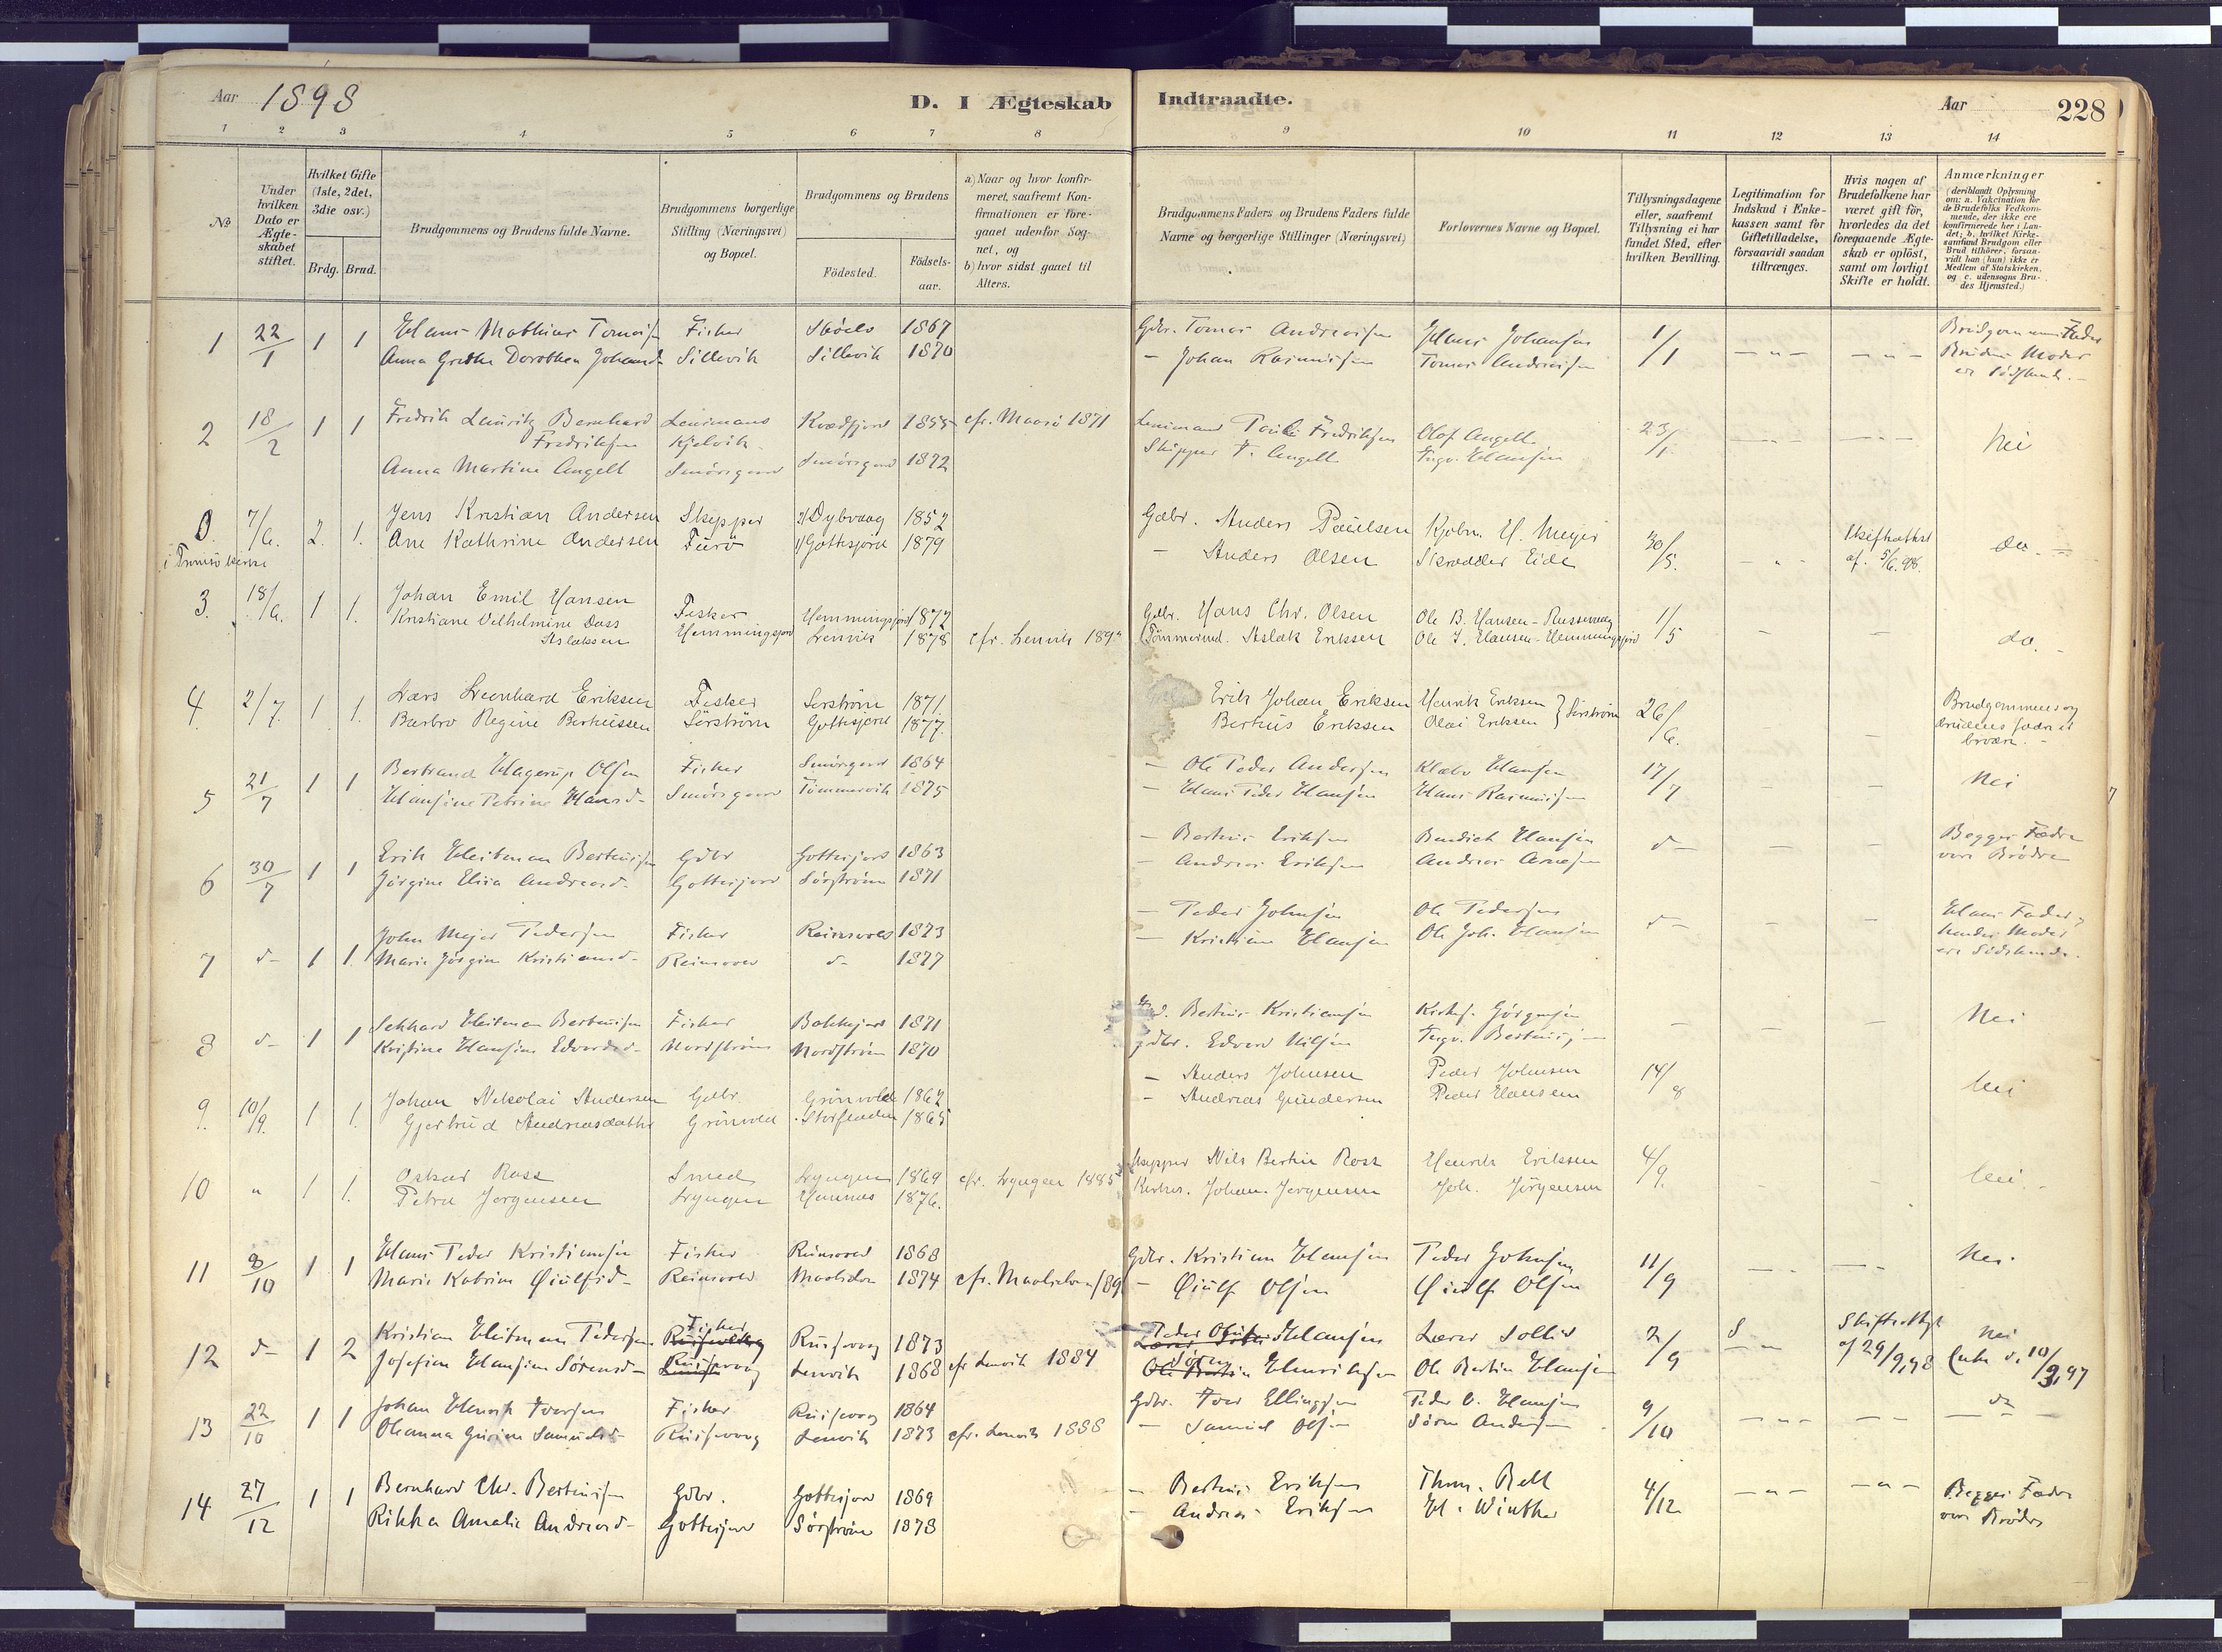 Aar 1898
D. I Ægteskab
Indtraadte.
Aar
228
1 2 3 4 5 6 7 8 9 10 11 12 13 14
No
Under hvilken Dato er Ægteskabet stiftet.
Hvilket Gifte (1ste, 2det, 3die osv.)
Brdg. Brud.
Brudgommens og Brudens fulde Navne.
Brudgommens borgerlige Stilling (Næringsvei) og Bopæl.
Brudgommens og Brudens
Födested.
Födsels-aar.
a) Naar og hvor konfirmeret, saafremt Konfirmationen er foregaaet udenfor Sognet, og
b) hvor sidst gaaet til Alters.
Brudgommens Faders og Brudens Faders fulde Navne og borgerlige Stillinger (Næringsvei)
Forlovernes Navne og Bopæl.
Tillysningsdagene eller, saafremt Tillysning ei har fundet Sted, efter hvilken Bevilling.
Legitimation for Indskud i Enkekassen samt for Giftetilladelse, forsaavidt saadan tiltrænges.
Hvis nogen af Brudefolkene har været gift för, hvorledes da det foregaaende Ægteskab er oplöst, samt om lovligt Skifte er holdt.
Anmærkninger
(deriblandt Oplysning om: a. Vakcination for de Brudefolks Vedkommende, der ikke ere konfirmerede her i Landet; b. hvilket Kirkesamfund Brudgom eller Brud tilhörer, forsaavidt han (hun) ikke er Medlem af Statskirken, og c. udensogns Brudes Hjemsted.)
1 22/1 1 1 Hans Mathias Fisker 1867 Gdbr. Tomas Andreassen Hans Johansen 1/1 Brudgommens Fader
Anna Grethe Dorothea Johansd Sillevik Sillevik 1870 - Johan Rasmussen Tomas Andreassen Brudens Moder
ere Södskende.
2 18/2 1 1 Fredrik Lauritz Bernhard Lensmand Kvædfjord 1855 cfr. Maasö 1871 Lensmand Fredriksen Olaf Angell 23/1 Nei
Fredriksen Kjelvik
Anna Martine Angell Smörsgaard Smörsgaard 1872 Skipper F. Angell Ingv. Hansen
0. 7/6. 2. 1. Jens Kristian Andersen Skipper Dybvaag 1852 Gdbr. Anders Paulsen Kjöbm. H. Meyer 30/5. Skifteattest do.
Ane Kathrine Andersen Gottesjord 1879 - Anders Olsen Skrædder Eide af 5/6. 98.
i Tromsö kirke
3. 18/6. 1 1. Johan Emil Hansen Fisker Hemmingsjord 1872 Gdbr. Hans Chr. Olsen Ole B. Hansen - Russevaag 1/5 do.
Kristiane Vilhelmine Dass Hemmingsjord Lenvik 1878 cfr. Lenvik Tömmermd. Aslak Eriksen Ole J. Hansen - Hemmingsjord
Aslaksen
4. 2/7. 1 1. Lars Leonhard Eriksen Fisker Sörström 1871. Erik Johan Eriksen Henrik Eriksen } Sörström 26/6. Brudgommens og
Barbro Regine Berteussen Sörström Gottesjord 1877. Berteus Eriksen Olai Eriksen brudens fædre er
brødre.
5 21/7 1 1 Bertrand Hagerup Olsen Fisker Smörsgaard 1864 - Ole Peder Andersen Klæbo Hansen 17/7 Nei
Hansine Petrine Hansd- Smörsgaard Tömmervik 1875 - Hans Peder Hansen Hans Rasmussen
6 30/7 1 1 Erik Heitman Berteussen Gdbr Gottesjord 1863 - Berteus Eriksen Bendick Hansen d- Begges Fædre
Jörgine Elisa Andreasd- Gottesjord Sörström 1871 - Andreas Eriksen Andreas Arnesen vare Brödre
7 d- 1 1. John Mejer Pedersen Fisker Reinsvold 1873 - Peder Johnsen Ole Pedersen d- Hans Fader,
Marie Jörgine Kristiansd- Reinsvold d- 1877 - Kristian Hansen Ole Joh. Hansen hendes Moder
ere Södskende.
8 d- 1 1 Sekhard Heitman Berteussen Fisker Bakkejord 1871 Berteus Kristiansen Kristof. Jörgensen Nei
Kristine Hansine Edvardsd- Nordström Nordström 1870 Gdbr. Edvard Nilsen Ingv. Berteussen
9. 10/9. 1 1. Johan Nikolai Andersen Gdbr. Grönvold 1862 - Anders Johnsen Peder Johnsen 14/8 Nei
Gjertrud Andreasdatter Grönvold Storfladen 1865 - Andreas Gundersen Peder Hansen
10 " 1 1. Oskar Ross Smed Lyngen 1869 cfr. Lyngen 1885 Skipper Nils Bertin Ross Henrik Eriksen 4/9. Nei.
Petra Jörgensen Lyngen Hamnæs 1876. Kirkes. Johan Jörgensen Joh. Jörgensen
11 8/10 1 1 Hans Peder Kristiansen Fisker Reinsvold 1868 Gdbr. Kristian Hansen Peder Johnsen 11/9 Nei.
Marie Katrine Öiulfsd- Reinsvold Maalselven 1874 cfr. Maalselven 189 - Öiulf Olsen Öiulf Olsen
12 d- 1 2 Kristian Heitmann Pedersen Fisker Russevaag 1873 Peder Hansen Lærer Sollid 2/9 Skifteattest Nei
Josefine Hansine Sörensd- Lenvik 1868 cfr. Lenvik 1884 Sören Henriksen Ole Bertin Hansen af 29/9, 98 Enke d. 10/3, 97
13 22/10 1 1 Johan Henrik Iversen Fisker Russevaag 1864 Gdbr. Iver Ellingsen Peder O. Hansen 9/10 do
Ohanna Gurine Samuelsd- Russevaag Lenvik 1873 cfr. Lenvik 1888 - Samuel Olsen Sören Andersen
14 27/12 1 1 Bernhard Chr. Berteussen Gdbr. Gottesjord 1869 - Berteus Eriksen Thom. Rell 4/12 Begges Fædre
Rikka Amalie Andreasd- Gottesjord Sörström 1878 - Andreas Eriksen H. Winther vare Brödre